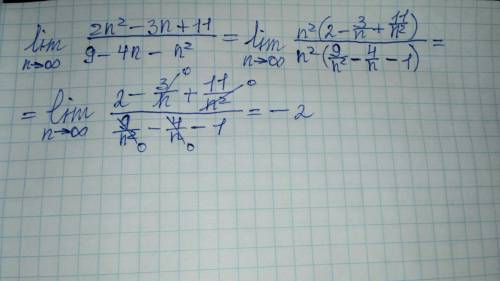 lim n→∞ (2n² - 3n + 11)/(9 - 4n - n²) = lim n→∞ (n²(2 - 3/n + 11/n²))/(n²(9/n² - 4/n - 1)) =
= lim n→∞ (2 - 3/n→0 + 11/n²→0)/(9/n²→0 - 4/n→0 - 1) = -2